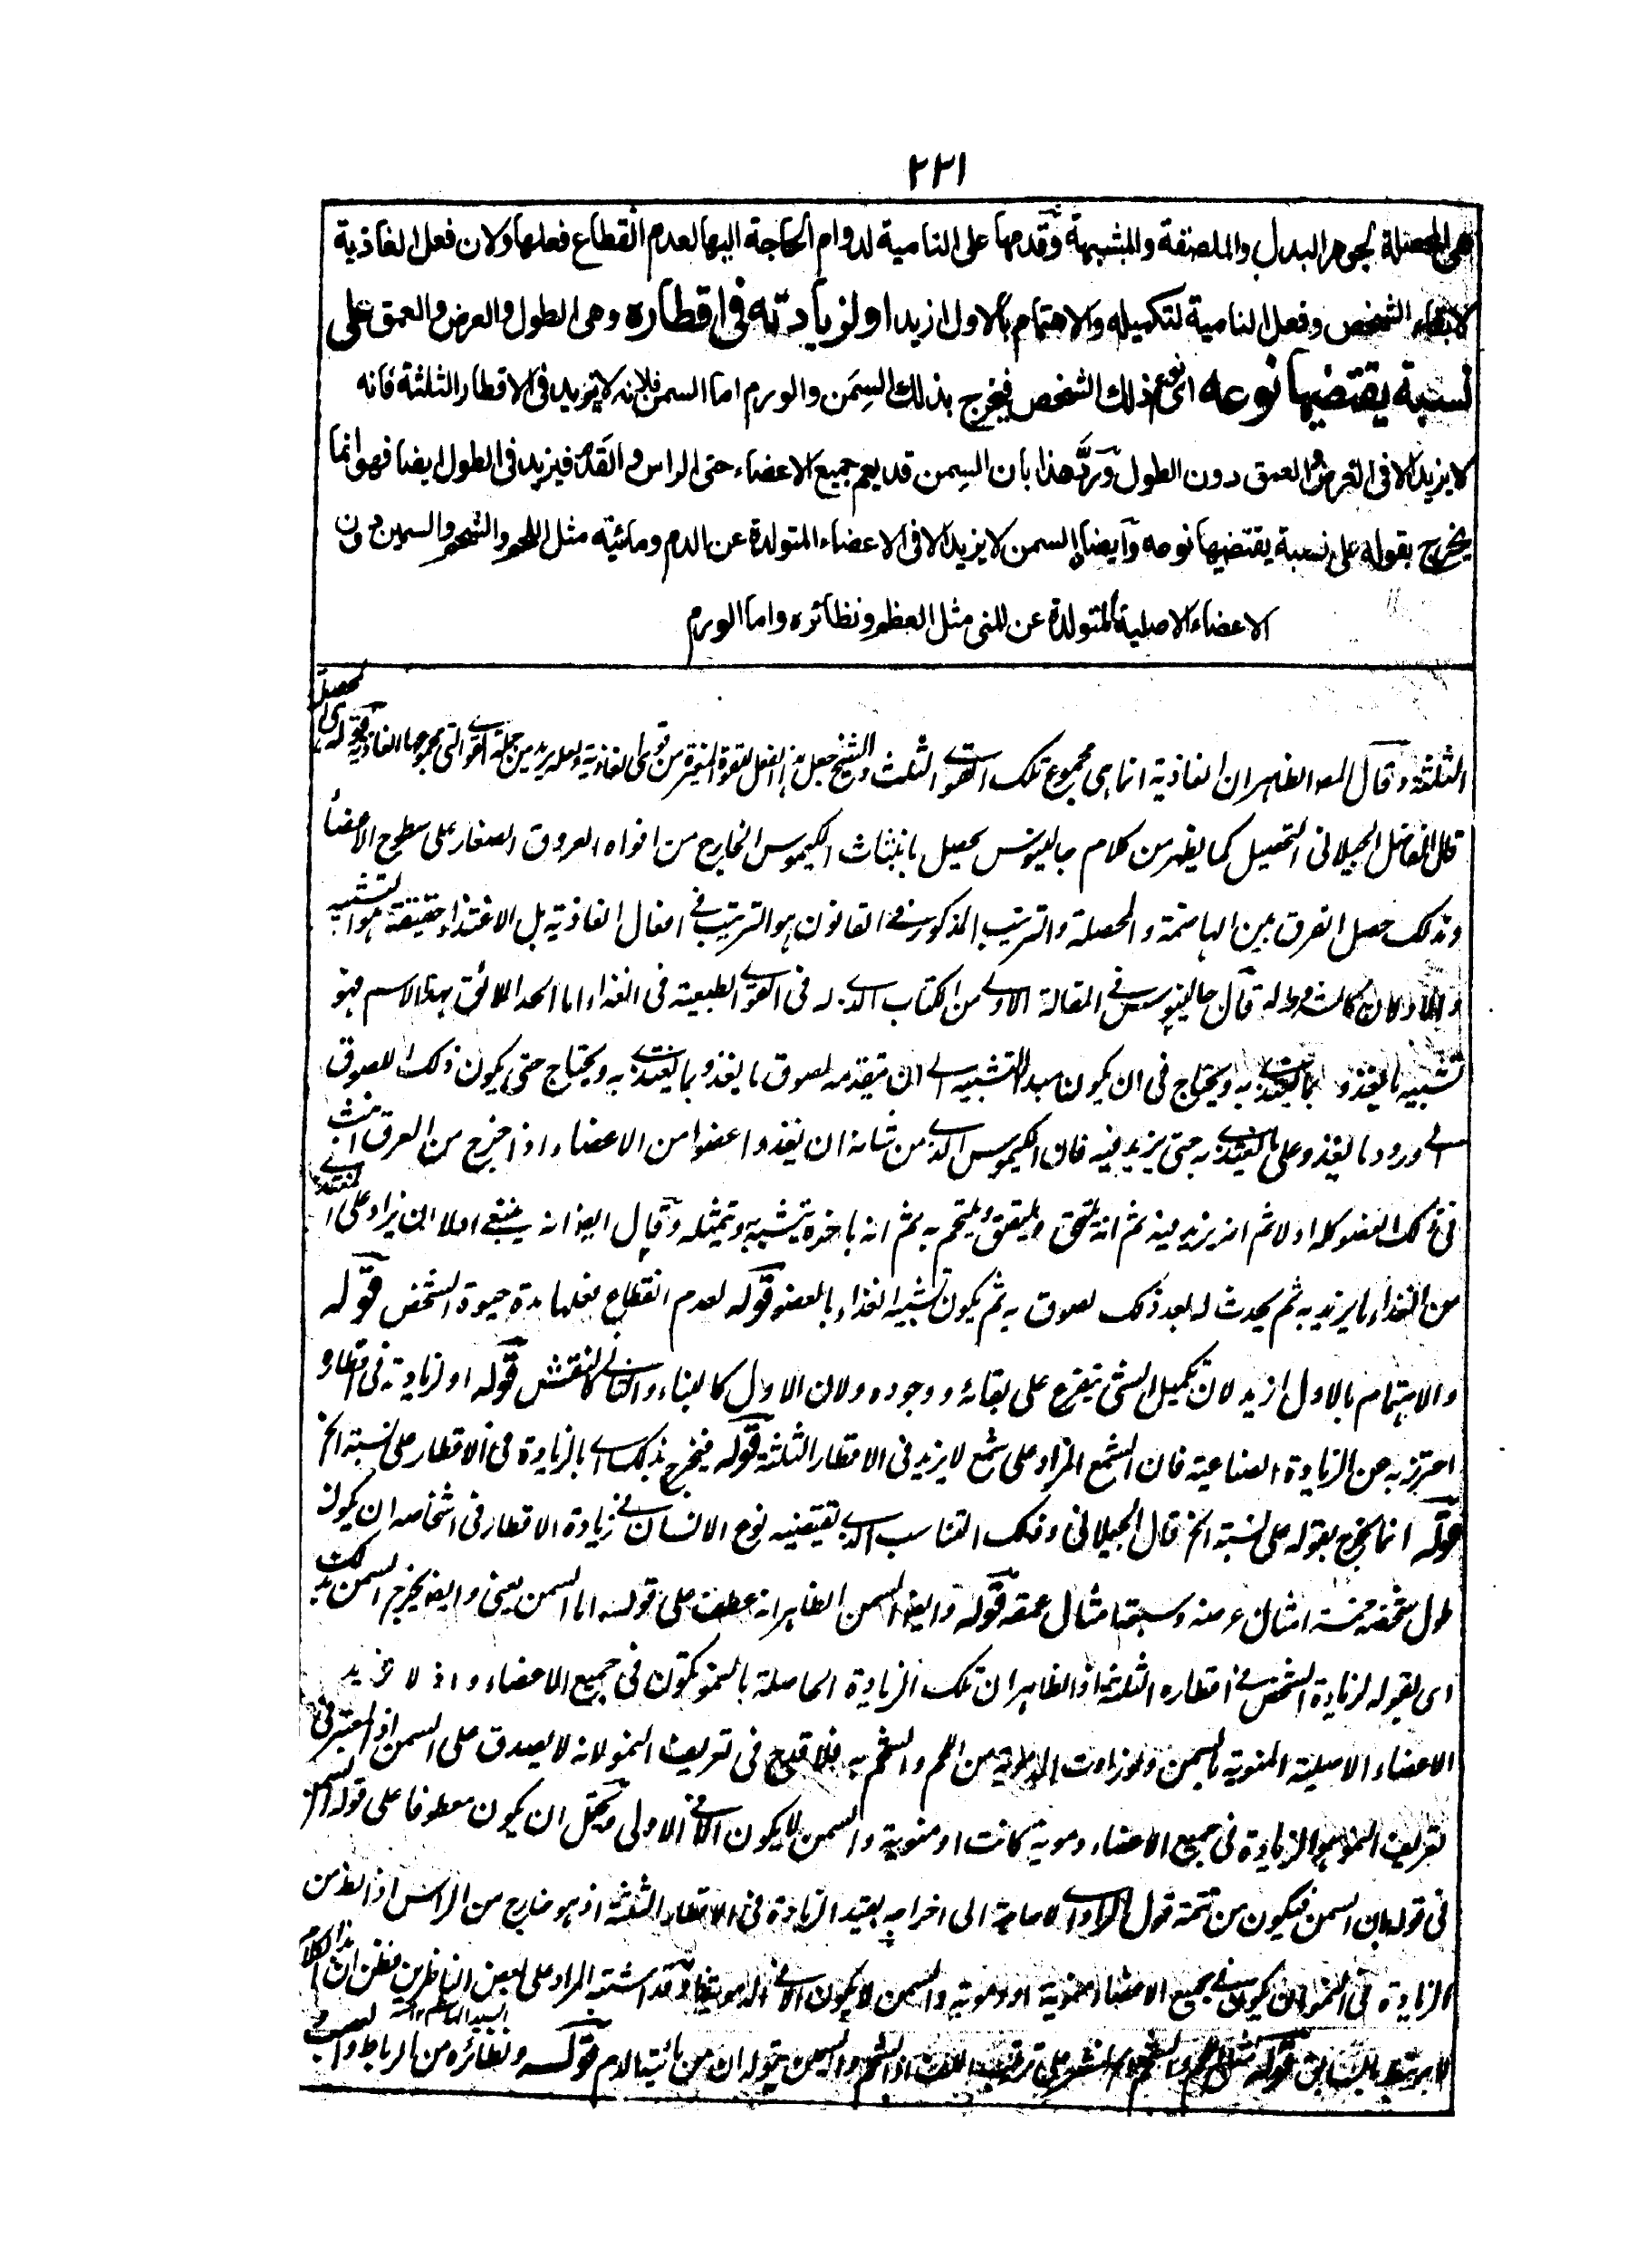 ٢٢١
هى المحصلة لجوهر البدل والملصقة والمشبهة وقدمها على النامية لدوام الحاجة اليها لعدم انقطاع فعلها ولان فعل الغاذية
لابقاء الشخص وفعل النامية لتكميله والاهتمام بالاول ازيد اولزيادته فى اقطاره وهى الطول والعرض والعمق على
نسبة يقتضيها نوعه اى نوع ذلك الشخص فيخرج بذلك السِمَن والورم اما السمن فلانه لا يزيد فى الاقطار الثلثة فانه
لا يزيد الا فى العرض والعمق دون الطول ورُدَّ هذا بان السِمن قد يعم جميع الاعضاء حتى الراس والقدم فيزيد فى الطول ايضا فهو انما
يخرج بقوله على نسبة يقتضيها نوعه وآيضا السمن لا يزيد الا فى الاعضاء المتولدة عن الدم ومائيته مثل اللحم والشحم والسمين دون
الاعضاء الاصلية المتولدة عن المنى مثل العظم ونظائره واما الورم
الثلثة وقال المص الظاهر ان الغاذية انما هى مجموع تلك القوى الثلث والشيخ جعل هذا الفعل للقوة المغيرة من قوى الغاذية ولعله يريد من جملة القوى التى مجموعها الغاذية قوله
قال الفاضل الجيلانى التحصيل كما يظهر من كلام جالينوس يحصل بانبثاث الكيموس الخارج من افواه العروق الصغار على سطوح الاعضاء
وبذلك حصل الفرق بين الهاضمة والمحصلة والترتيب المذكور فى القانون هو الترتيب فى افعال الغاذية بل الاغتذاء حقيقة هو التشبيه
والاولان كالشروط له قال جالينوس فى المقالة الاولى من الكتاب الذى له فى القوى الطبيعية فى الغذاء اما الحد اللائق بهذا الاسم فهو
تشبيه ما يغذو بما يغتذى به ويحتاج فى ان يكون هذا التشبيه الى ان يتقدمه لصوق ما يغذو بما يغتذى به ويحتاج حتى يكون ذلك اللصوق
الى ورود ما يغذو على ما يغتذى به حتى يزيد فيه فان الكيموس الذى من شانه ان يغذو عضوا من الاعضاء اذا خرج من العرق انبث
فى ذلك العضو كله اولا ثم انه يزيد فيه ثم انه يلتحق ويلتصق ويلتحم به ثم انه باخره يتشبه ويتمثله وقال ايضا انه ينبغى اولا ان يزاد على المغتذى
من الغذاء ما يزيد به ثم يحدث له بعد ذلك لصوق به ثم يكون تشبيه الغذاء بالعضو قوله لعدم انقطاع فعلها مدة حيوة الشخص قوله
والاهتمام بالاول ازيد لان تكميل الشئ يتفرع على بقائه ووجوده ولان الاول كالبناء والثانى كالنقش قوله اولزيادته فى اقطاره
احترز به عن الزيادة الصناعية فان الشمع المزاد على شمع لا يزيد فى الاقطار الثلثة قوله فيخرج بذلك اى بالزيادة فى الاقطار على نسبة الخ
قوله انما يخرج بقوله على نسبة الخ قال الجيلانى وذلك التناسب الذى يقتضيه نوع الانسان فى زيادة الاقطار فى اشخاصه ان يكون
طول شخصه خمسة امثال عرضه وسبعة امثال عمقه قوله وايضا السمن الظاهر انه عطف على قوله اما السمن يعنى وايضا يخرج السمن بذلك
اى بقوله لزيادة الشخص فى اقطاره الثلثة اذ الظاهر ان تلك الزيادة الحاصلة بالنمو تكون فى جميع الاعضاء واذ لا تزيد
الاعضاء الاصلية المنوية بالسمن ولو زادت الدموية من اللحم والشحم به فلا قدح فى تعريف النمو لانه لا يصدق على السمن اذ المعتبر فى
تعريف النمو هو الزيادة فى جميع الاعضاء دموية كانت او منوية والسمن لا يكون الا فى الاولى ويحتمل ان يكون معطوفا على قوله السمن
فى قوله بان السمن فيكون من تتمة قول الراد اى لا حاجة الى اخراجه بقيد الزيادة فى الاقطار الثلثة اذ هو خارج من الراس اذ الغرض من
الزيادة فى النمو ان يكون فى جميع الاعضاء منوية او دموية والسمن لا يكون الا فى الدموية وقد اشتبه المراد على بعض الناظرين فظن ان هذا الكلام
لا يرتبط بالسابق قوله مثل اللحم والشحم والسمين بقوله ان من مائية الدم قوله ونظائره من الرباط والعصب